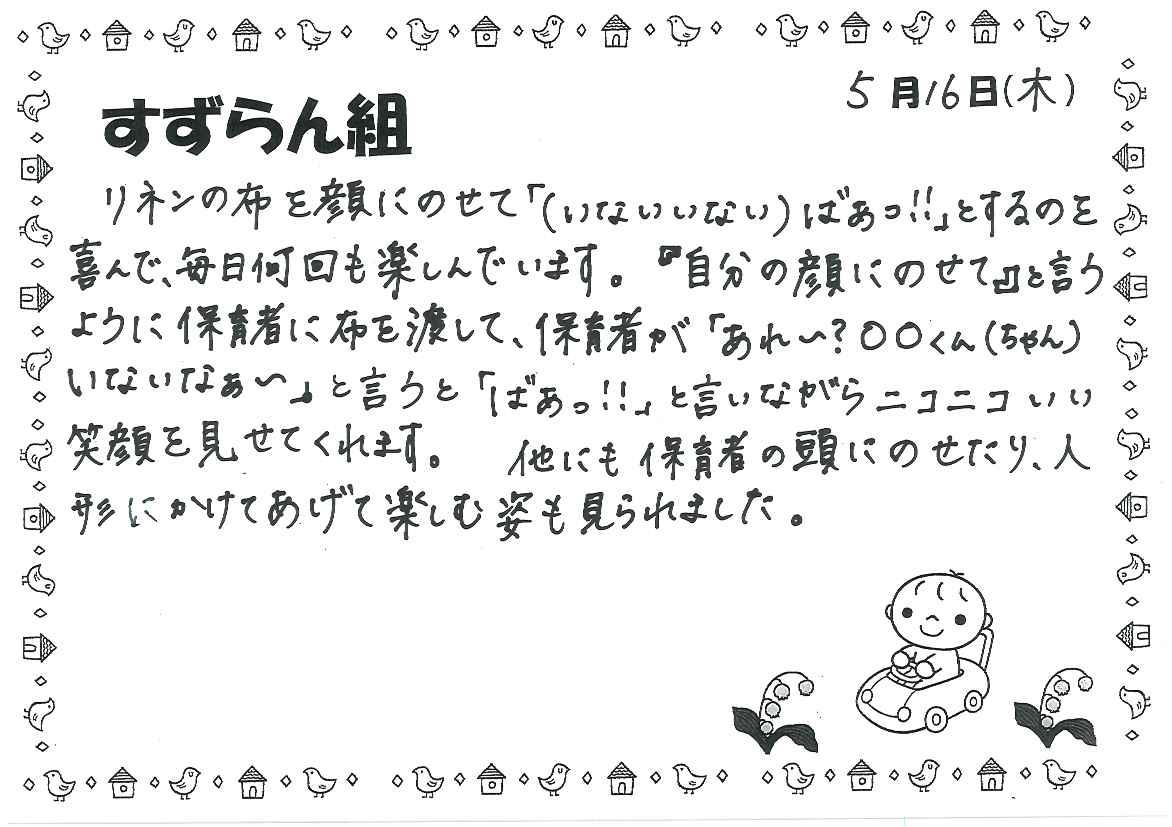 5月16日(木)
すずらん組
リネンの布を顔にのせて「(いないいない)ばあっ!!」とするのを
喜んで、毎日何回も楽しんでいます。『自分の顔にのせて』と言う
ように保育者に布を渡して、保育者が「あれ〜?○○くん(ちゃん)
いないなぁ〜」と言うと「ばあっ!!」と言いながらニコニコいい
笑顔を見せてくれます。 他にも保育者の頭にのせたり、人
形にかけてあげて楽しむ姿も見られました。